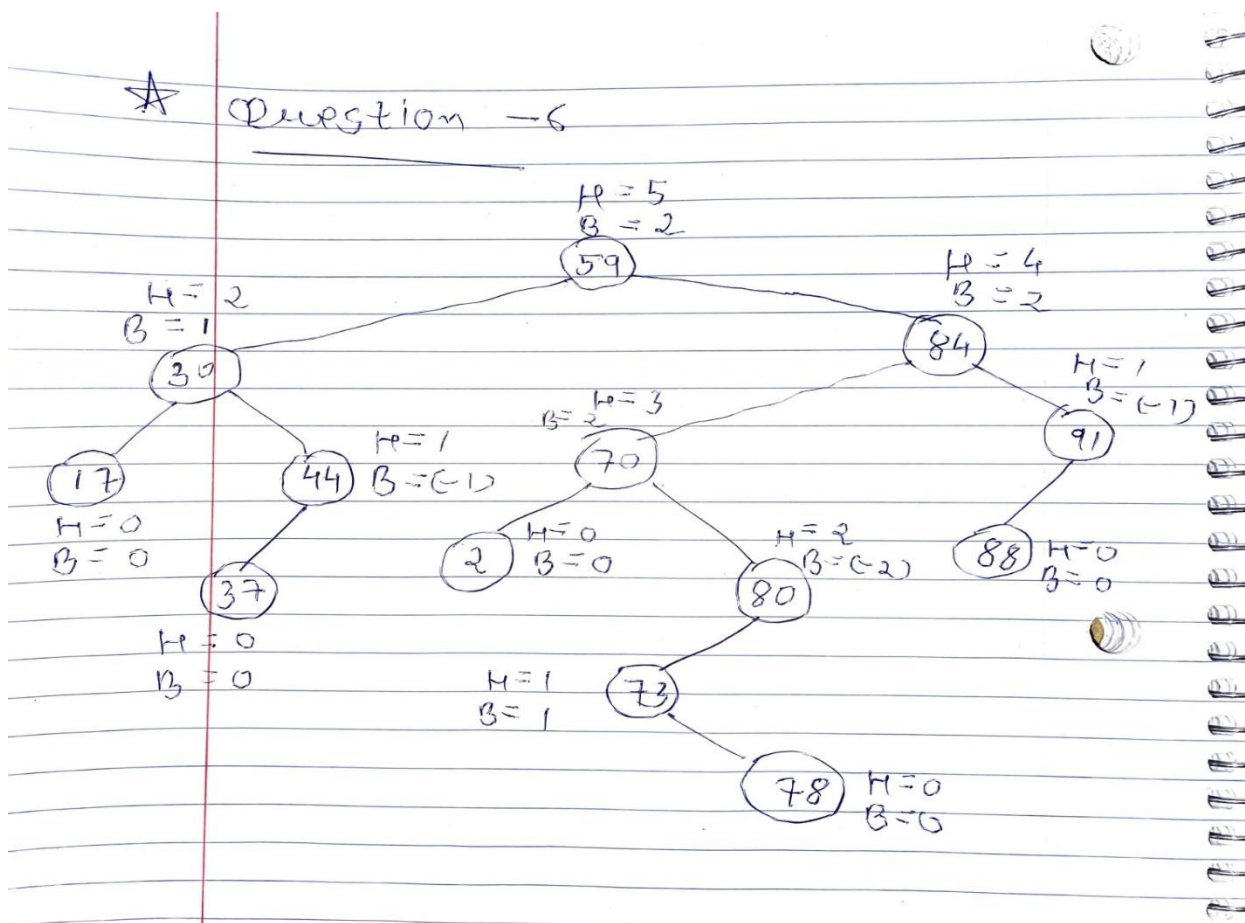 Question - 6
H = 5
B = 2
59
H = 4
B = 2
84
H = 2
B = 1
30
H = 1
B = (-1)
91
H = 3
B = 2
70
17
H = 0
B = 0
44
H = 1
B = (-1)
2
H = 0
B = 0
H = 2
B = (-2)
80
88
H = 0
B = 0
37
H = 0
B = 0
H = 1
B = 1
73
78
H = 0
B = 0